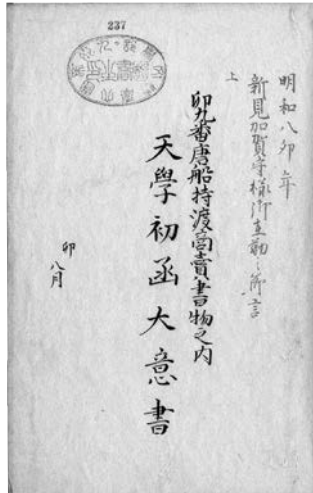 237
明和八卯年
新見加賀守様御在勤之節
上
卯九番唐船持渡商賣書物之内
天學初函大意書
卯八月